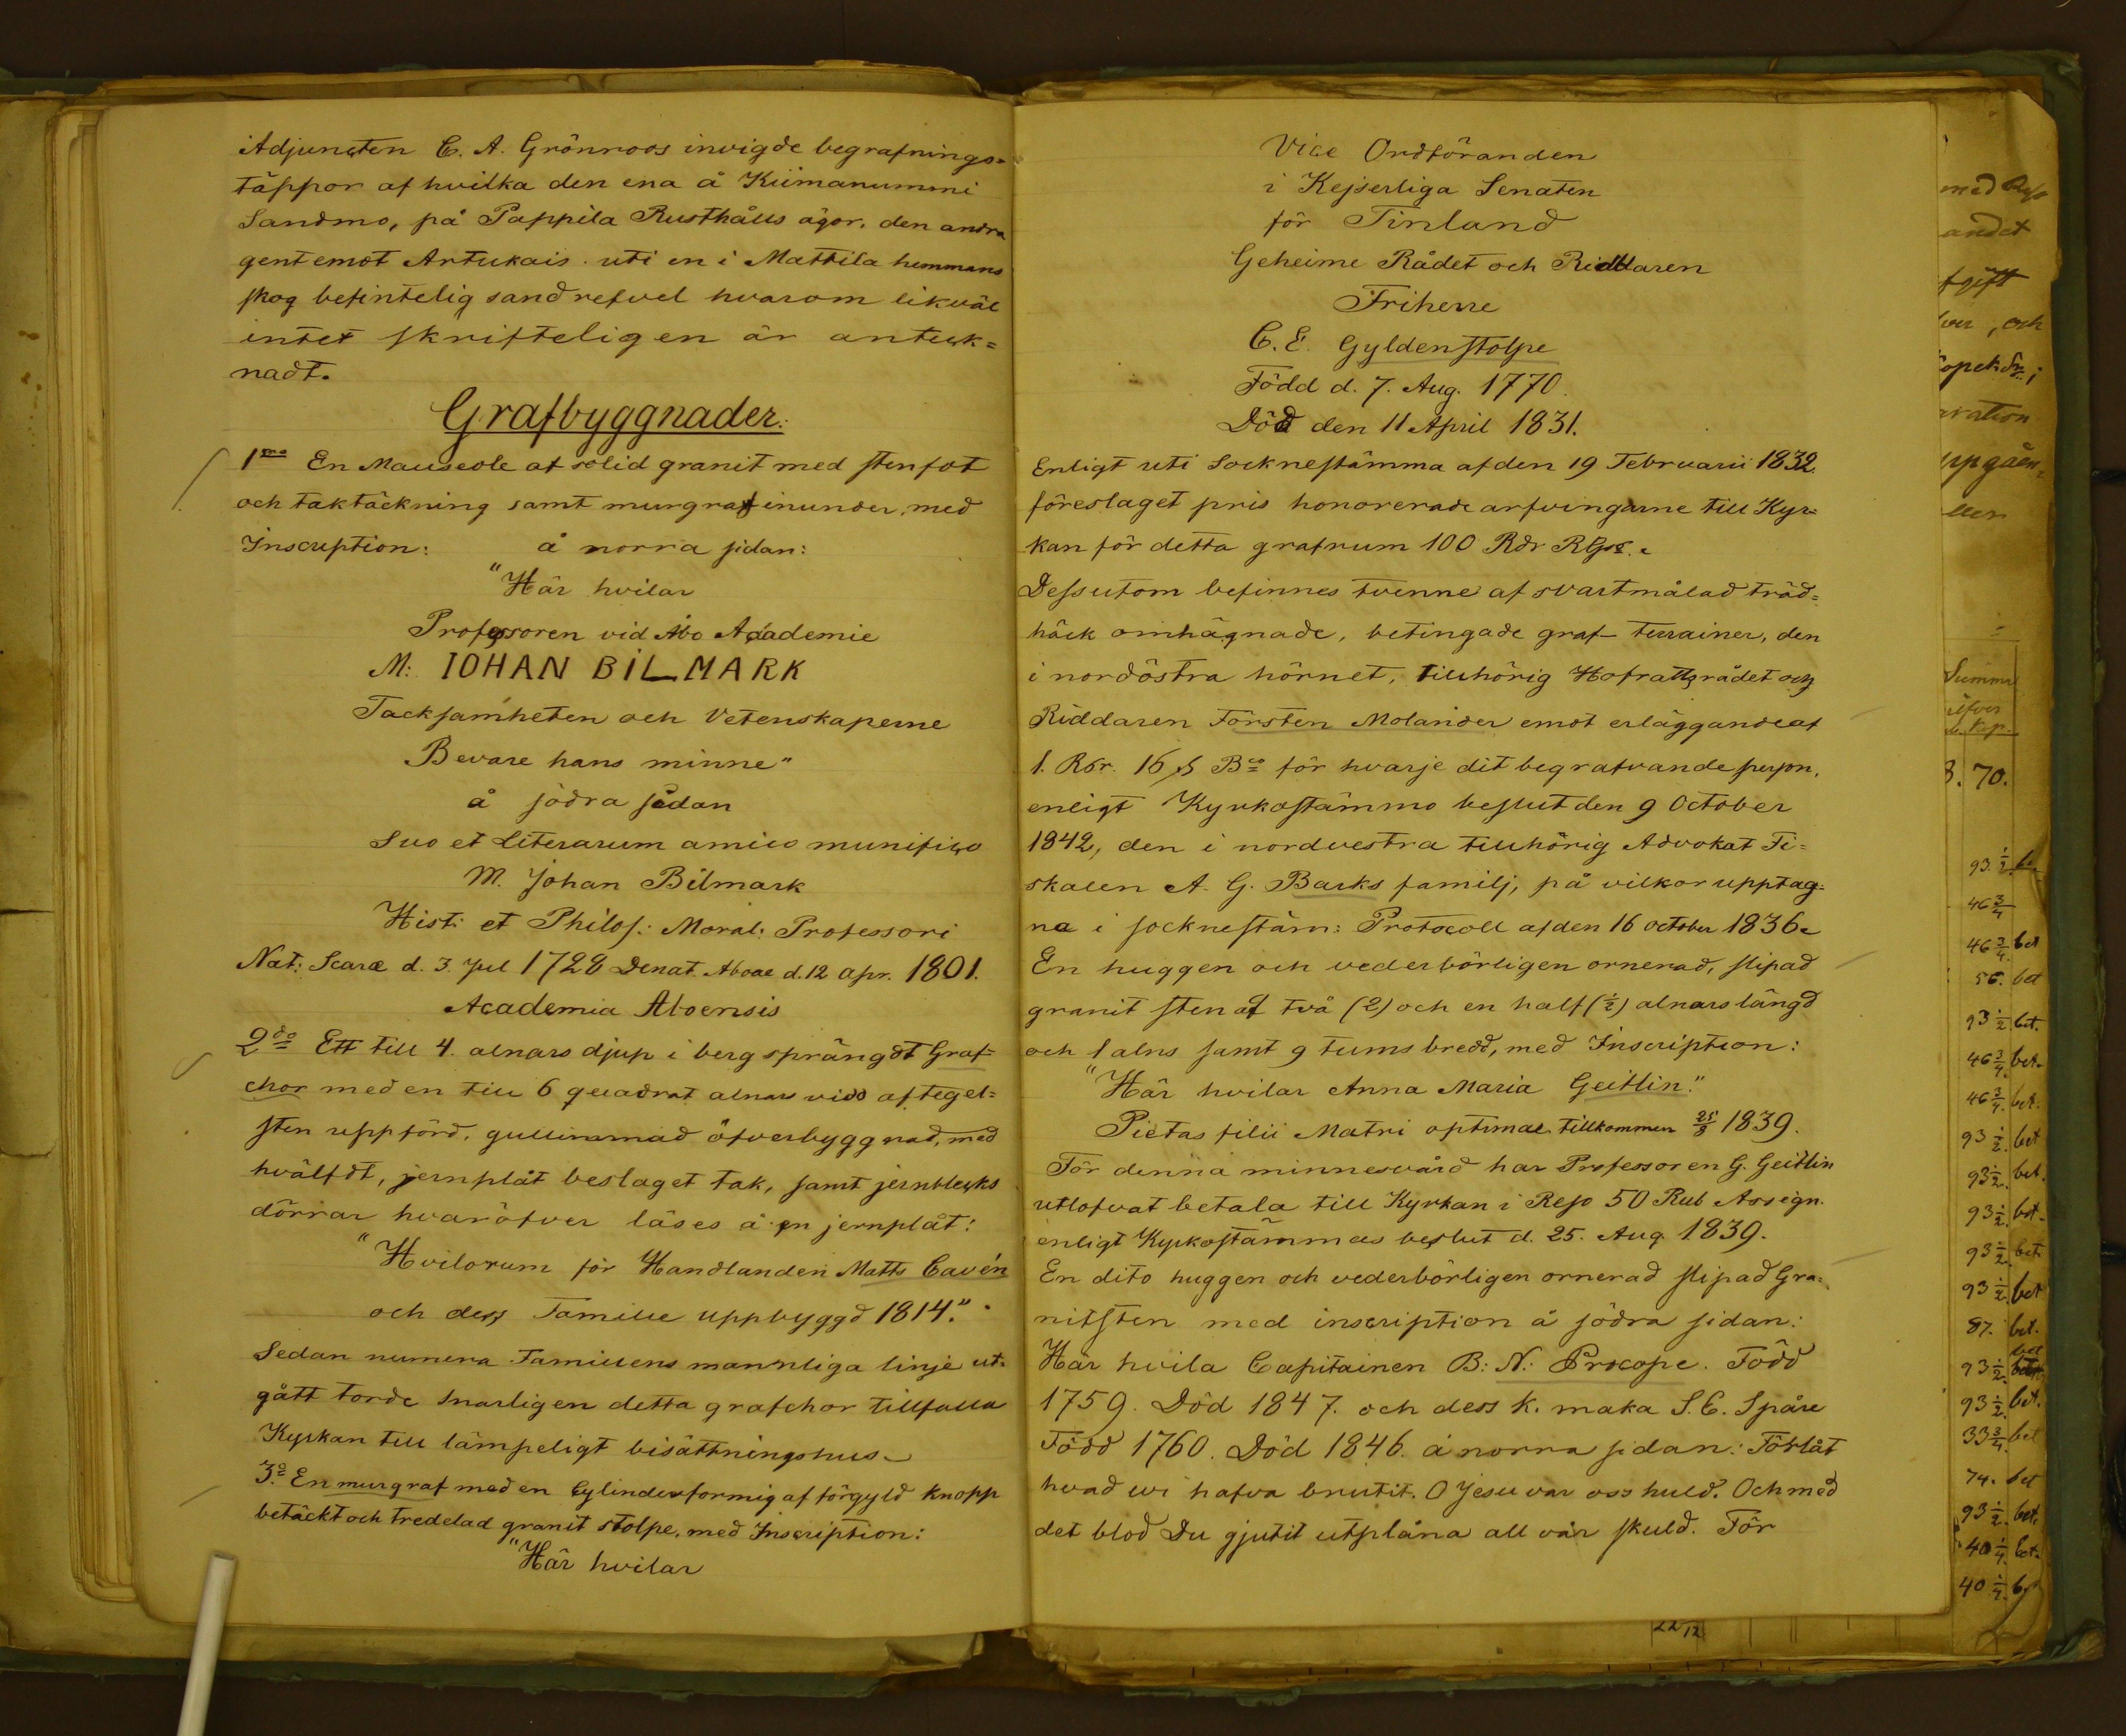 Adjuncten C. A. Grönroos invigde begrafnings=
täppor af hvilka den ena å Kiimanummi
Sandmo, på Pappila Rusthålls ägor, den andra
gent emot Artukais uti en i Mattila hemmans
skog befintelig sandrefvel hvarom likväl
intet skrifteligen är anteck=
nadt.
Grafbyggnader.
1mo En Mauseole af solid granit med stenfot
och taktäckning samt murgraf inunder, med
Inscription: å norra sidan:
"Här hvilar
Professoren vid Åbo Academie
M: IOHAN BILMARK
Tacksamheten och Vetenskaperne
Bevare hans minne"
å södra sidan
Suo et Literarum amico munifico
M. Johan Bilmark
Hist: et Philos: Moral: Professori
Nat: Scaræ d. 3. Jul 1728 Denat. Aboae d. 12 Apr. 1801.
Academia Aboensis
2do Ett till 4. alnars djup i berg sprängdt Graf=
chor med en till 6 quadrat alnars vidd af tegel=
sten uppförd, gullimmad öfverbyggnad, med
hvälfdt, jernplåt beslaget tak, samt jernblecks
dörrar hvaröfver läses å en jernplåt:
"Hvilorum för Handlanden Matts Cavén
och dess Familie uppbyggd 1814."
Sedan numera Familiens mannliga linje ut=
gått torde snarligen detta grafchor tillfalla
Kyrkan till lämpeligt bisättningshus.
3o En murgraf med en Cylinderformig af förgyld knopp
betäckt och tredelad granit stolpe, med Inscription:
"Här hvilar
Vice Ordföranden
i Kejserliga Senaten
för Finland
Geheime Rådet och Riddaren
Friherre
C. E. Gyldenstolpe
Född d. 7. Aug. 1770.
Död den 11 April 1831.
Enligt uti Socknestämma af den 19 Februarii 1832.
föreslaget pris honorerade arfvingarne till Kyr=
kan för detta grafrum 100 Rdr RGs.
Dessutom befinnes tvenne af svartmålad träd=
häck omhägnade, betingade graf-terrainer, den
i nordöstra hörnet, tillhörig Hofrättsrådet och
Riddaren Försten Molander emot erläggande af
1. Rdr. 16 ß Bco för hvarje dit begrafvande person,
enligt Kyrkostämmo beslut den 9 October
1842, den i nordvestra tillhörig Advokat Fi=
skalen A. G. Barks familj, på vilkor upptag=
na i socknestäm: Protocoll af den 16 october 1836.
En huggen och vederbörligen ornerad, slipad
granit sten af två (2) och en half (½) alnars längd
och 1 alns samt 9 tums bredd, med Inscription:
"Här hvilar Anna Maria Geitlin."
Pietas filii Matri optimae tillkommen 25/8 1839.
För denna minnesvård har Professoren G. Geitlin
utlofvat betala till Kyrkan i Reso 50 Rub Assign.
enligt Kyrkostämmas beslut d. 25. Aug. 1839.
En dito huggen och vederbörligen ornerad slipad Gra=
nitsten med inscription å södra sidan:
Här hvila Capitainen B: N: Procope. Född
1759. Död 1847. och dess k. maka S. C. Spåre
Född 1760. Död 1846. å norra sidan: Förlåt
hvad wi hafva brutit. O Jesu var oss huld. Och med
det blod Du gjutit utplåna all vår skuld. För
andet
fgift
, och
ration
Summa
Kop.
3. 70.
93 ½
46 ¾
46 ¾ bet
56. bet
93 ½ bet.
46 ¾ bet.
46 ¾ bet.
93 ½ bet
93 ½ bet.
93 ½ bet.
93 ½ bet.
93 ½ bet
87. bet.
bet
93 ½
93 ½ bet.
33 ¾ bet
74. bet
93 ½ bet.
40 ¼ bet.
40 ¼
22/12